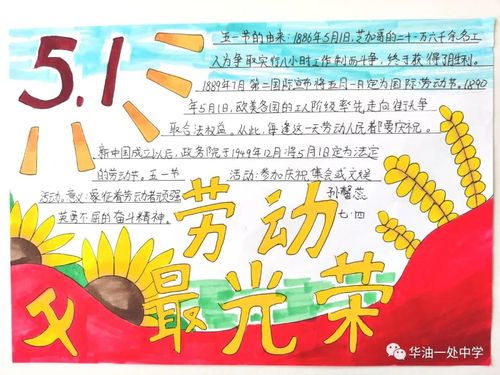 5.1
五一节的由来：1886年5月1日，芝加哥的二十一万六千余名工
人为争取实行八小时工作制而斗争，终于获得了胜利。
1889年7月第二国际宣布将五月一日定为国际劳动节。1890
年5月1日，欧美各国的工人阶级率先走向街头争
取合法权益。从此，每逢这一天劳动人民都要庆祝。
新中国成立以后，政务院于1949年12月将5月1日定为法定
的劳动节。五一节 活动：参加庆祝集会或文娱
活动。意义：象征着劳动者顽强
英勇不屈的奋斗精神。
孙馨蕊
七·四
劳动
最光荣
华油一处中学